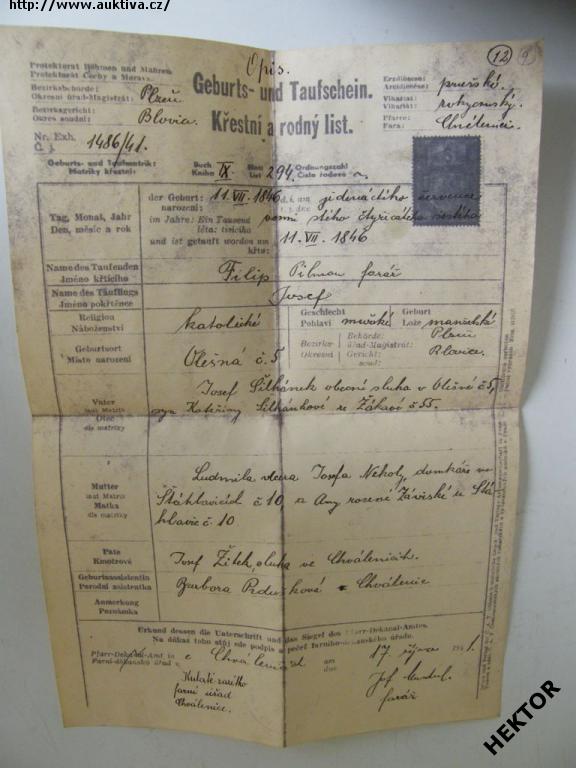 http://www.auktiva.cz/
Opis.
12
Protektorat Böhmen und Mähren
Protektorát Čechy a Morava
Geburts- und Taufschein.
Křestní a rodný list.
Bezirksbehörde:
Okresní úřad-Magistrát: Plzeň
Bezirksgericht:
Okres soudní: Blovice
Nr. Exh.
Č. j. 1486/41.
Erzdiözese:
Arcidiecése: pražská
Vikariat:
Vikariát: rokycanský
Pfarre:
Fara: Chválenice
Geburts- und Taufmatrik:
Matriky křestní:
Buch
Kniha IX.
Blatt
List 294,
Ordnungszahl
Číslo řadové
Tag, Monat, Jahr
Den, měsíc a rok
der Geburt:
narození: 11. VII. 1846 d. i. am jedenáctého července
im Jahre: Ein Tausend
léta: tisícího osmi stého čtyřicátého šestého
und ist getauft worden am
křtu: 11. VII. 1846
Name des Taufenden
Jméno křtícího
Filip Pilman farář
Name des Täuflings
Jméno pokřtěnce
Josef
Religion
Náboženství
katolické
Geschlecht
Pohlaví mužské
Geburt
Lože manželské
Geburtsort
Místo narození
Olešná č. 5
Bezirks- Behörde:
úřad-Magistrát: Plzeň
Okresní Gericht:
soud: Blovice.
Vater
laut Matrik
Otec
dle matriky
Josef Šilhánek obecní sluha v Olešné č. 5,
syn Kateřiny Šilhánkové ze Žákavé č. 55.
Mutter
laut Matrik
Matka
dle matriky
Ludmila dcera Josefa Nekoly, domkáře ve
Štáhlavicích č. 10, a Anny rozené Záviské ze Štá-
hlavic č. 10
Pate
Kmotrové
Josef Žitek, sluha ve Chválenicích.
Geburtsassistentin
Porodní asistentka
Barbora z Chválenic
Anmerkung
Poznámka
Urkund dessen die Unterschrift und das Siegel des Pfarr-Dekanal-Amtes.
Na důkaz toho stůj zde podpis a pečeť farního-děkanského úřadu.
Pfarr-Dekanal-Amt in
Farní-děkanský úřad
am
dne 17. října 1941.
Kulaté razítko
farní úřad
Chválenice.
Jos.
farář
HEKTOR